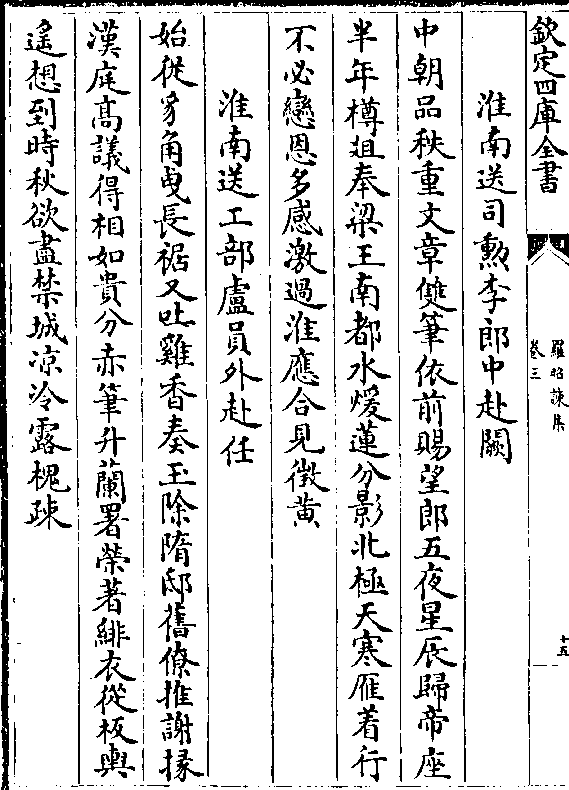 欽定四庫全書
羅昭諫集
卷三
十五
淮南送司勲李郎中赴闕
中朝品秩重文章雙筆依前賜望郎五夜星辰歸帝座
半年樽俎奉梁王南都水煖蓮分影北極天寒雁着行
不必戀恩多感激過淮應合見徵黄
淮南送工部盧員外赴任
始從豸角曳長裾又吐雞香奏玉除隋邸舊僚推謝掾
漢庭髙議得相如貴分赤筆升蘭署榮著緋衣從板輿
遥想到時秋欲盡禁城凉冷露槐疎